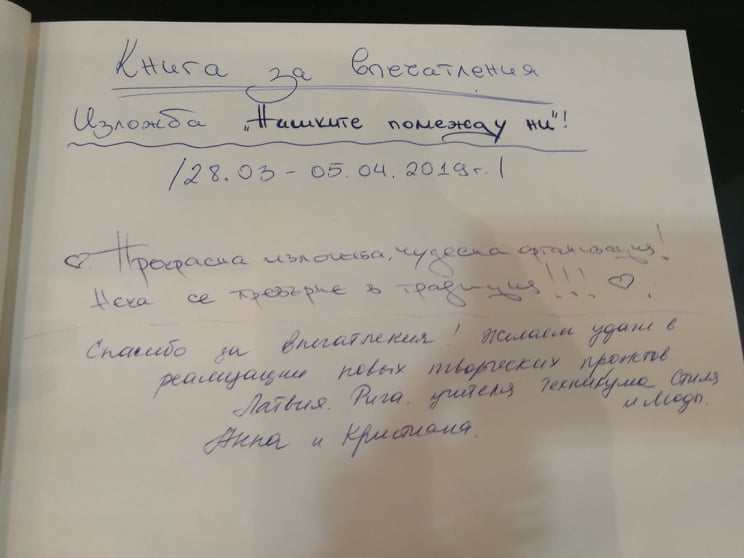 Книга за впечатления
Изложба "Нишките помежду ни"!
/28.03 - 05.04.2019г./
♡ Прекрасна изложба, чудесна организация!
Нека се превърне в традиция!!! ♡.
Спасибо за впечатления! Желаем удачи в
реализации новых творческих проектов.
Латвия. Рига. учителя Техникума Стиля
и Моды.
Анна и Кристиана.